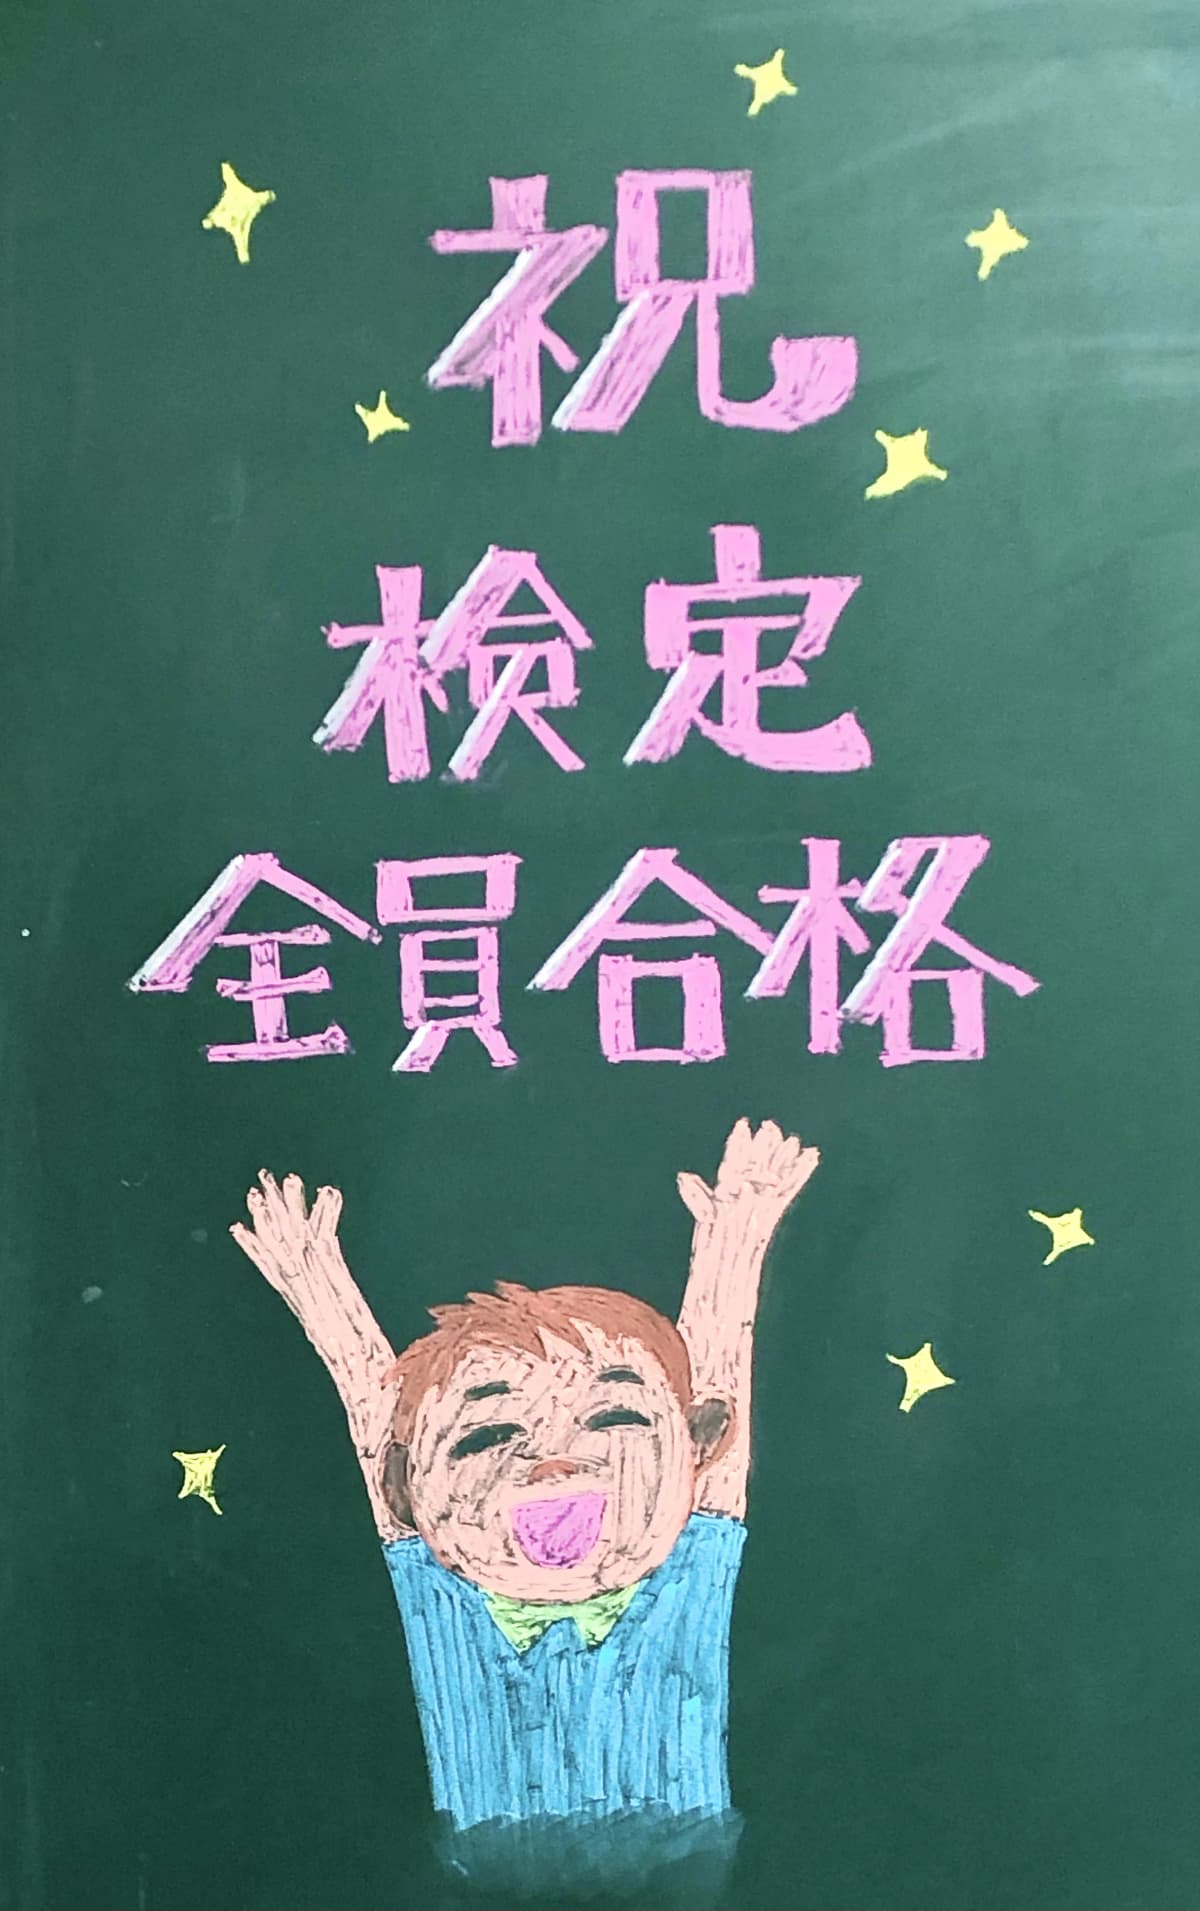 祝
検定
全員合格